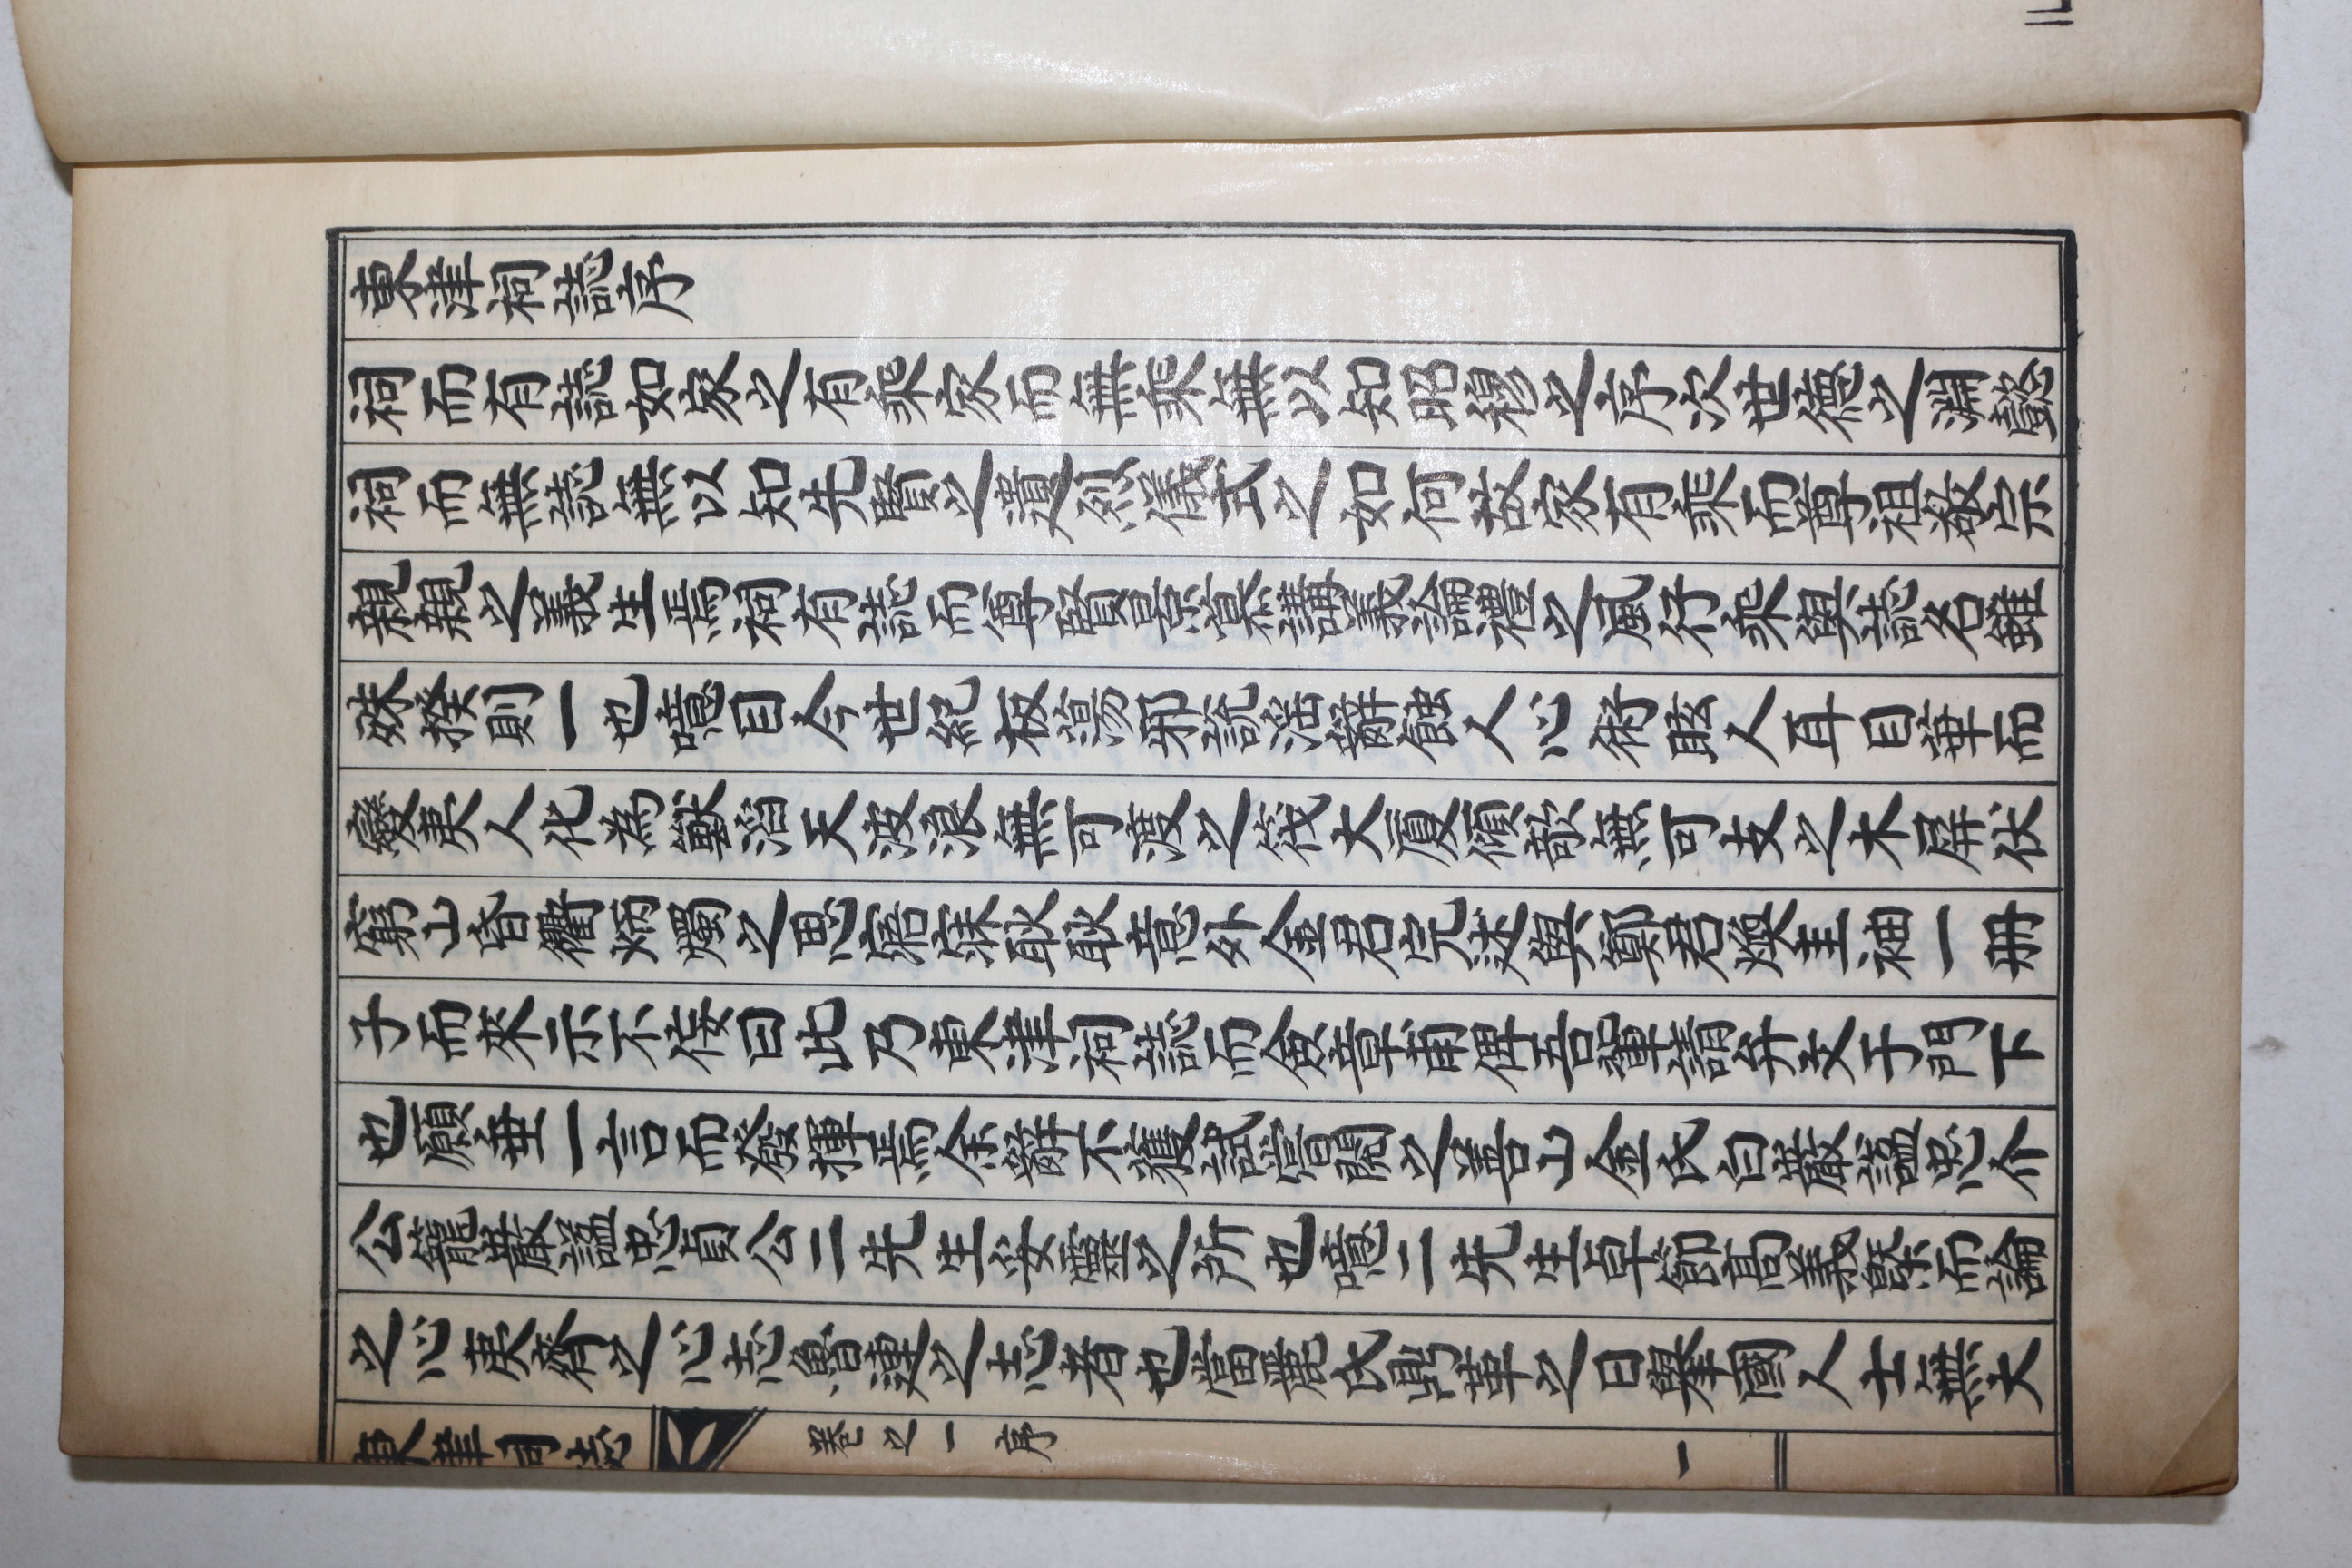 東津祠誌序
祠而有誌如家之有乘家而無乘無以知昭穆之序次世德之淵懿
祠而無誌無以知先賢之遺烈儀式之如何故家有乘而尊祖敬宗
親親之義生焉祠有誌而尊賢景慕講義論禮之風行乘與誌名雖
殊揆則一也噫目今世紀板蕩邪說淫辭蝕人心術眩人耳目華而
變夷人化為獸滔天波浪無可渡之筏大厦傾欹無可支之木屛伏
窮山昏衢炳燭之思寤寐耿耿意外金君完述與鄭君煥圭袖一冊
子而來示不侫曰此乃東津祠誌而僉章甫俾吾輩請弁文于門下
也願垂一言而發揮焉余辭不獲試嘗閱之善山金氏白巖諡忠介
公籠巖諡忠貞公二先生妥靈之所也噫二先生卓節高義槩而論
之心夷齊之心志魯連之志者也當麗氏鼎革之日擧國人士無大
東津祠誌 卷之一 序 一